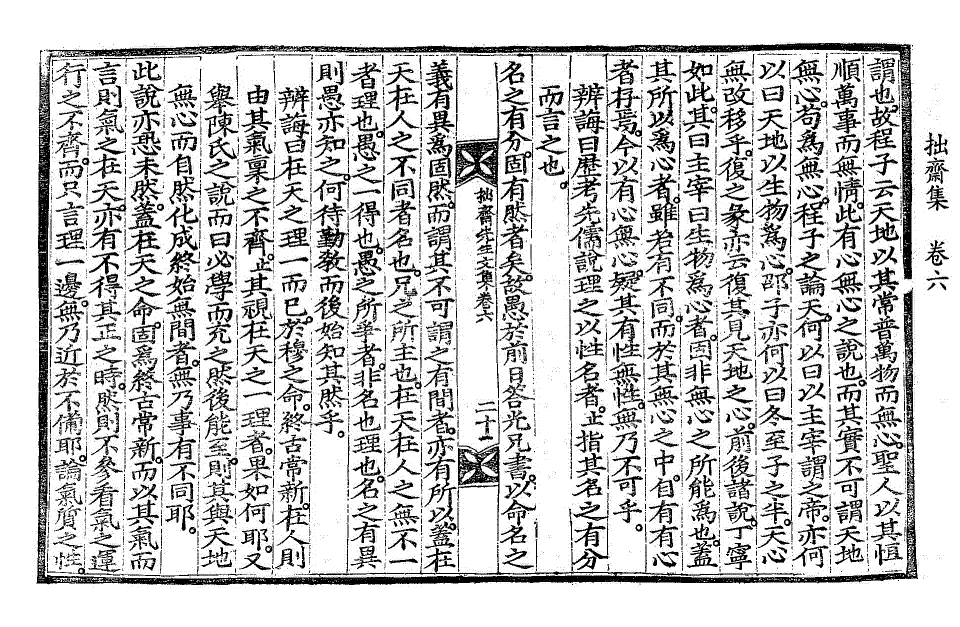 拙齋集　卷六
謂也。故程子云天地以其常普萬物而無心。聖人以其恒
順萬事而無情。此有心無心之說也。而其實不可謂天地
無心。苟爲無心。程子之論天。何以曰以主宰謂之帝。亦何
以曰天地以生物爲心。邵子亦何以曰冬至子之半。天心
無改移乎。復之彖亦云復其見天地之心。前後諸說。丁寧
如此。其曰主宰曰生物爲心者。固非無心之所能爲也。蓋
其所以爲心者。雖若有不同。而於其無心之中。自有有心
者存焉。今以有心無心。疑其有性無性。無乃不可乎。
辨誨曰歷考先儒說理之以性名者。止指其名之有分
而言之也。
名之有分。固有然者矣。故愚於前日答光兄書。以命名之
拙齋先生文集卷六
二十一
義有異爲固然。而謂其不可謂之有間者。亦有所以。蓋在
天在人之不同者名也。兄之所主也。在天在人之無不一
者理也。愚之一得也。愚之所爭者。非名也理也。名之有異
則愚亦知之。何待勤敎而後始知其然乎。
辨誨曰在天之理一而已。於穆之命。終古常新。在人則
由其氣稟之不齊。止其視在天之一理者。果如何耶。又
舉陳氏之說而曰必學而充之然後能至。則其與天地
無心而自然化成終始無間者。無乃事有不同耶。
此說亦恐未然。蓋在天之命。固爲終古常新。而以其氣而
言則氣之在天。亦有不得其正之時。然則不參看氣之運
行之不齊。而只言理一邊。無乃近於不備耶。論氣質之性。